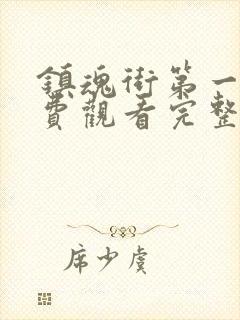 鎮魂街第一
費觀看完整
席少虞